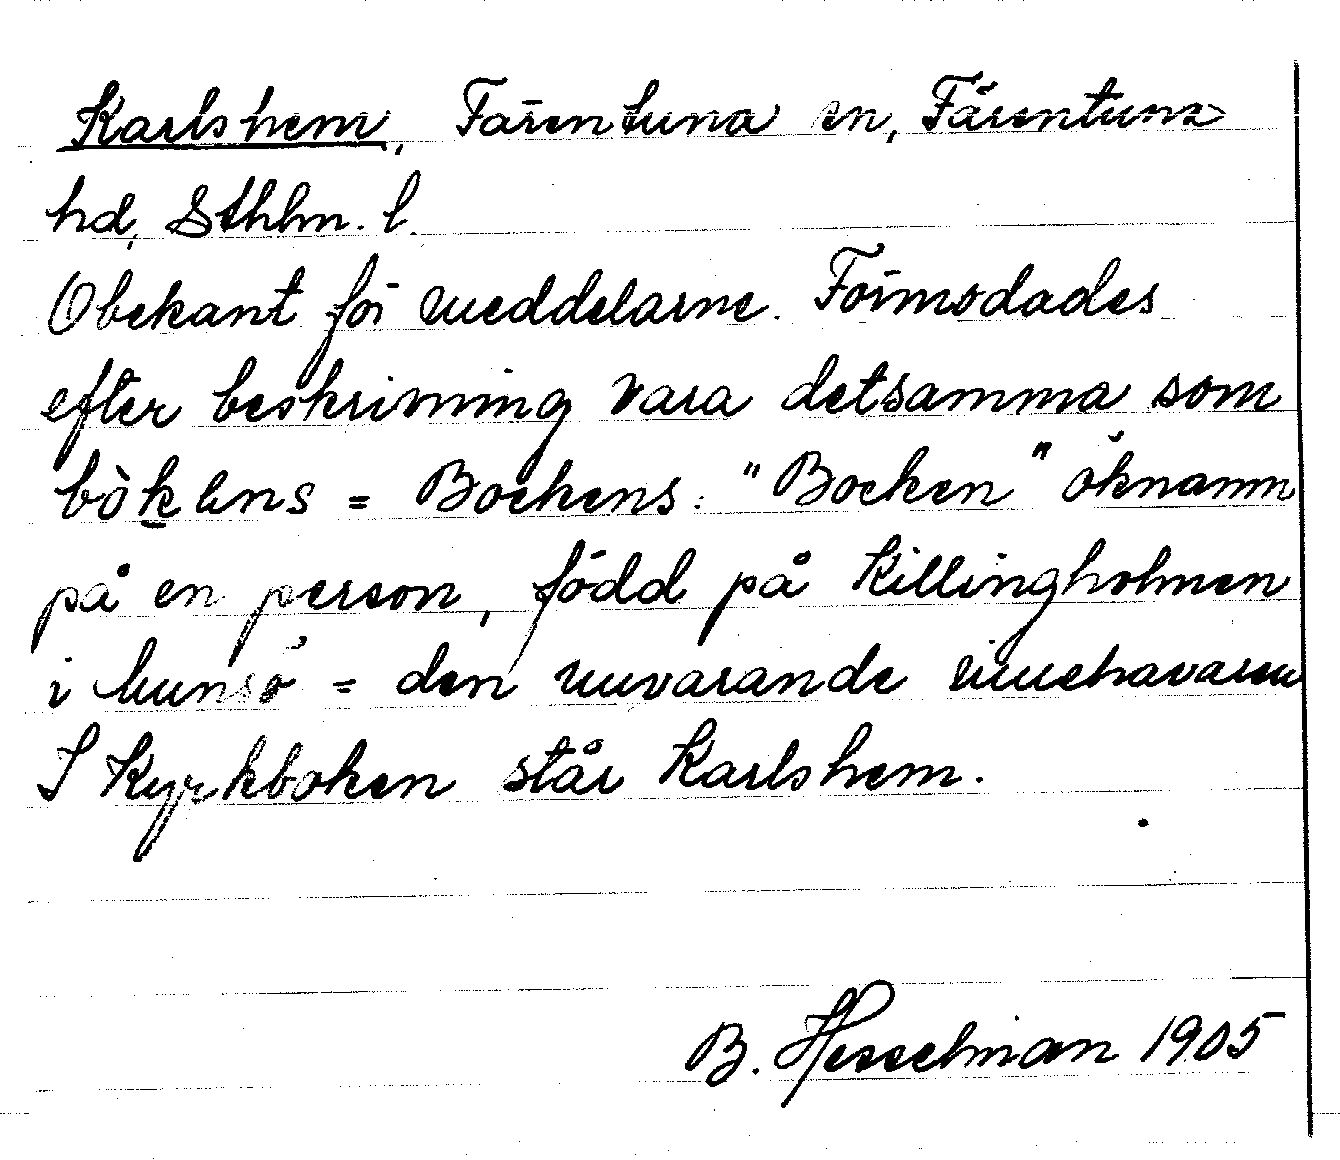 Karlshem, Färentuna sn, Färentuna
hd, Sthlm. l.
Obekant för meddelarne. Förmodades
efter beskrivning vara detsamma som
bòkans = Bockens. "Bocken" öknamn
på en person, född på Killingholmen
i Munsö = den nuvarande innehavaren
I Kyrkboken står Karlshem.
B. Hesselman 1905